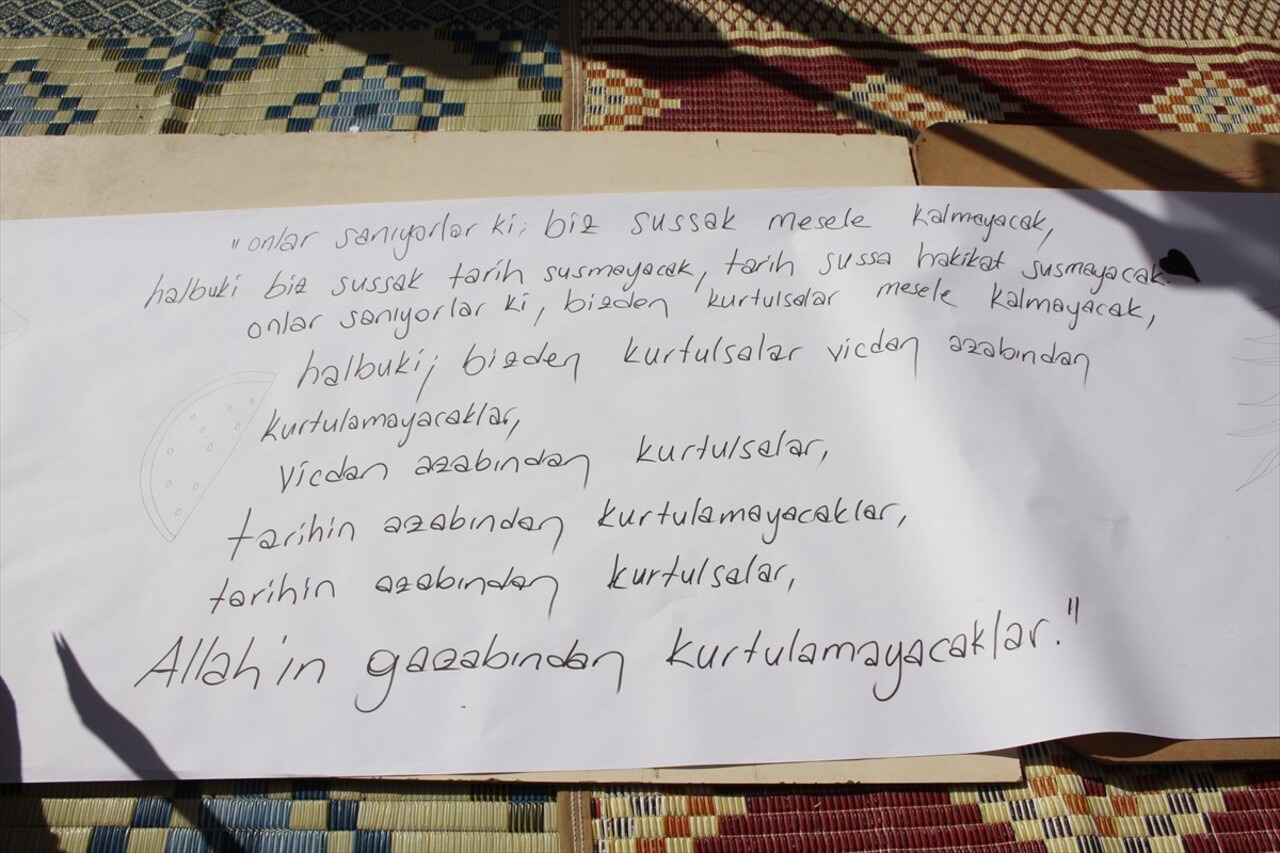 "onlar sanıyorlar ki; biz sussak mesele kalmayacak,
halbuki biz sussak tarih susmayacak, tarih sussa hakikat susmayacak.
onlar sanıyorlar ki, bizden kurtulsalar mesele kalmayacak,
halbuki; bizden kurtulsalar vicdan azabından
kurtulamayacaklar,
vicdan azabından kurtulsalar,
tarihin azabından kurtulamayacaklar,
tarihin azabından kurtulsalar,
Allah'ın gazabından kurtulamayacaklar."